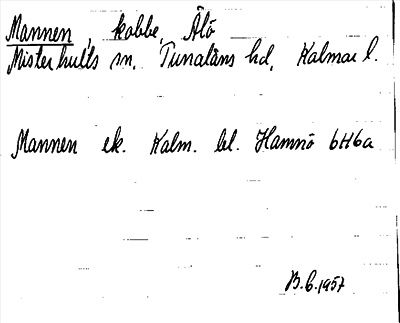 Mannen, kobbe, Älö
Misterhults sn. Tunaläns hd, Kalmar l.
Mannen ek. Kalm. bl. Hamnö 6H6a
B.G.1957